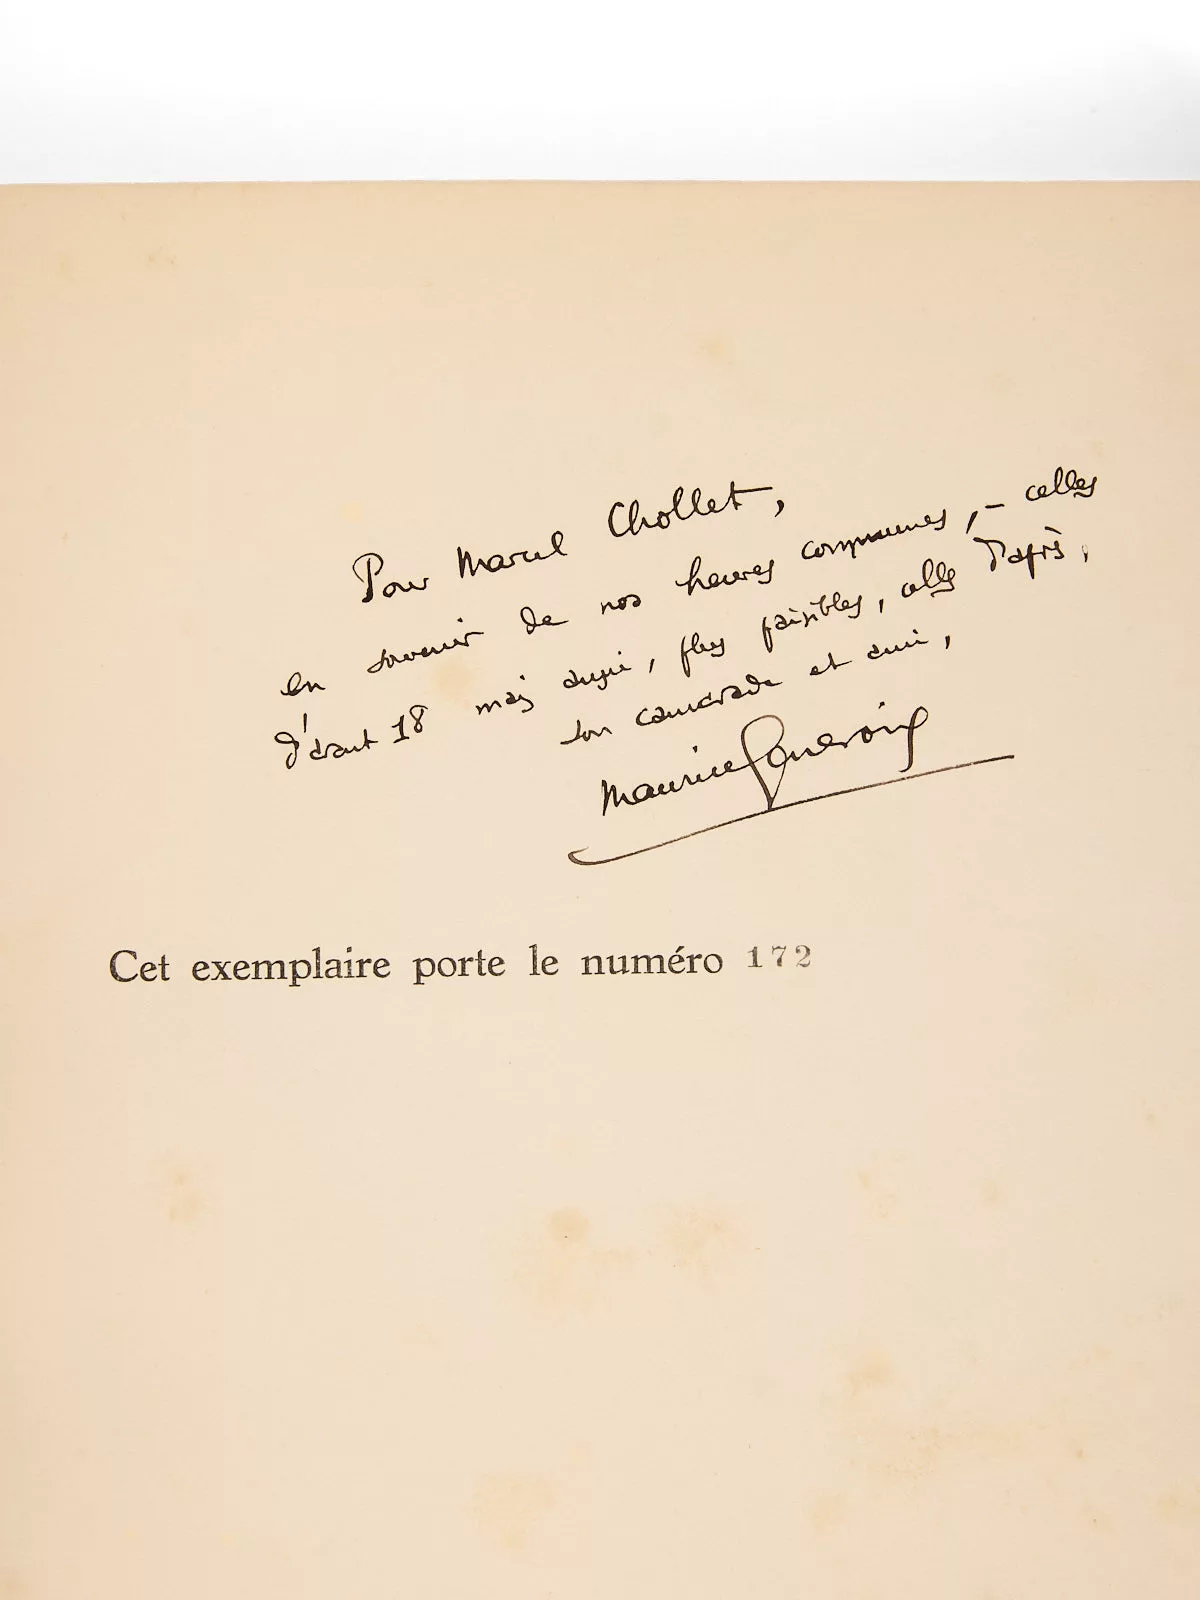 Pour Marcel Chollet,
en souvenir de nos heures communes, – celles
d'avant 18 mais aussi, plus paisibles, celles d'après,
son camarade et ami,
Maurice Genevoix
Cet exemplaire porte le numéro 172